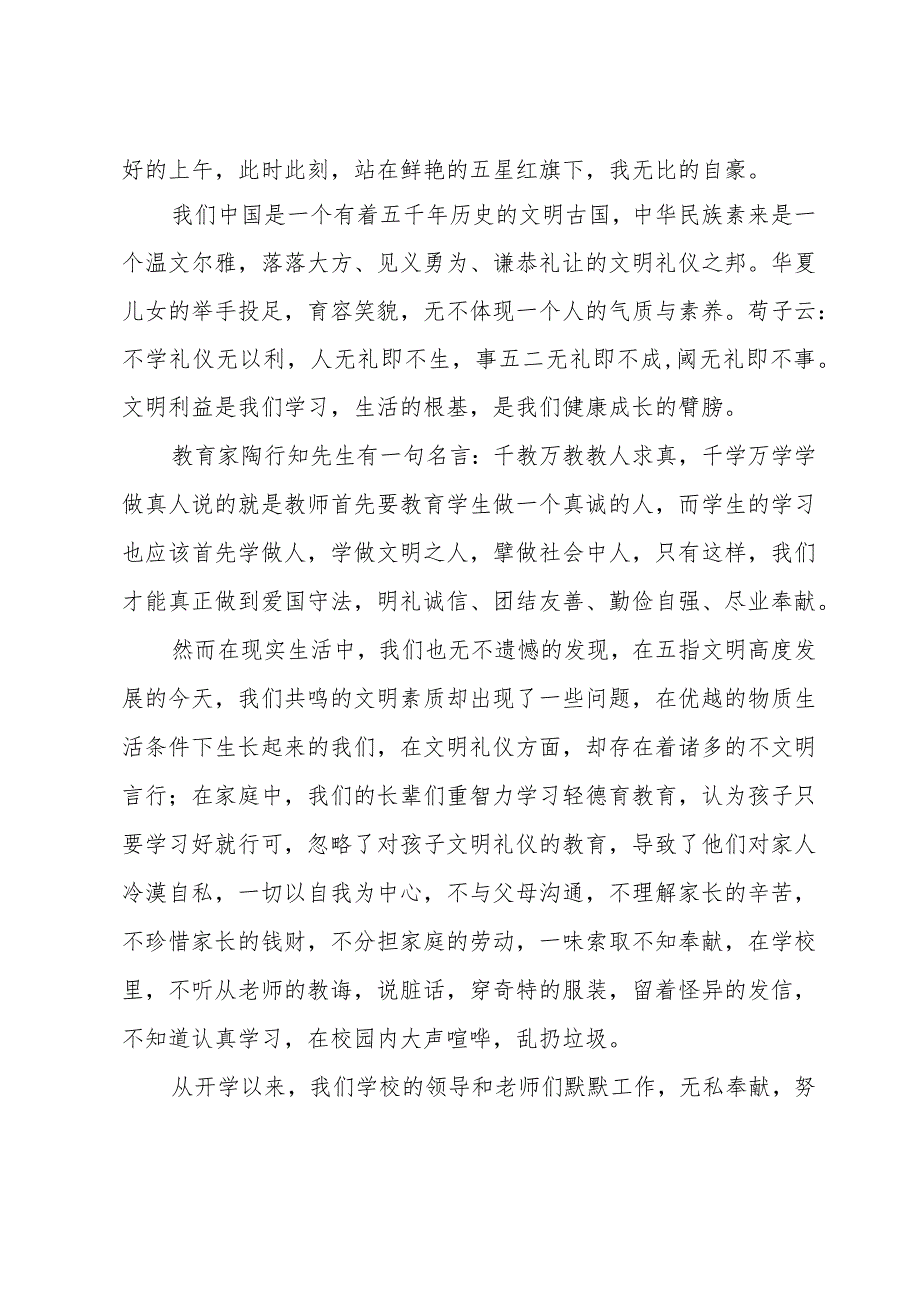 好的上午，此时此刻，站在鲜艳的五星红旗下，我无比的自豪。
我们中国是一个有着五千年历史的文明古国，中华民族素来是一
个温文尔雅，落落大方、见义勇为、谦恭礼让的文明礼仪之邦。华夏
儿女的举手投足，育容笑貌，无不体现一个人的气质与素养。荀子云：
不学礼仪无以利，人无礼即不生，事五二无礼即不成,阈无礼即不事。
文明利益是我们学习，生活的根基，是我们健康成长的臂膀。
教育家陶行知先生有一句名言：千教万教教人求真，千学万学学
做真人说的就是教师首先要教育学生做一个真诚的人，而学生的学习
也应该首先学做人，学做文明之人，擘做社会中人，只有这样，我们
才能真正做到爱国守法，明礼诚信、团结友善、勤俭自强、尽业奉献。
然而在现实生活中，我们也无不遗憾的发现，在五指文明高度发
展的今天，我们共鸣的文明素质却出现了一些问题，在优越的物质生
活条件下生长起来的我们，在文明礼仪方面，却存在着诸多的不文明
言行；在家庭中，我们的长辈们重智力学习轻德育教育，认为孩子只
要学习好就行可，忽略了对孩子文明礼仪的教育，导致了他们对家人
冷漠自私，一切以自我为中心，不与父母沟通，不理解家长的辛苦，
不珍惜家长的钱财，不分担家庭的劳动，一味索取不知奉献，在学校
里，不听从老师的教诲，说脏话，穿奇特的服装，留着怪异的发信，
不知道认真学习，在校园内大声喧哗，乱扔垃圾。
从开学以来，我们学校的领导和老师们默默工作，无私奉献，努